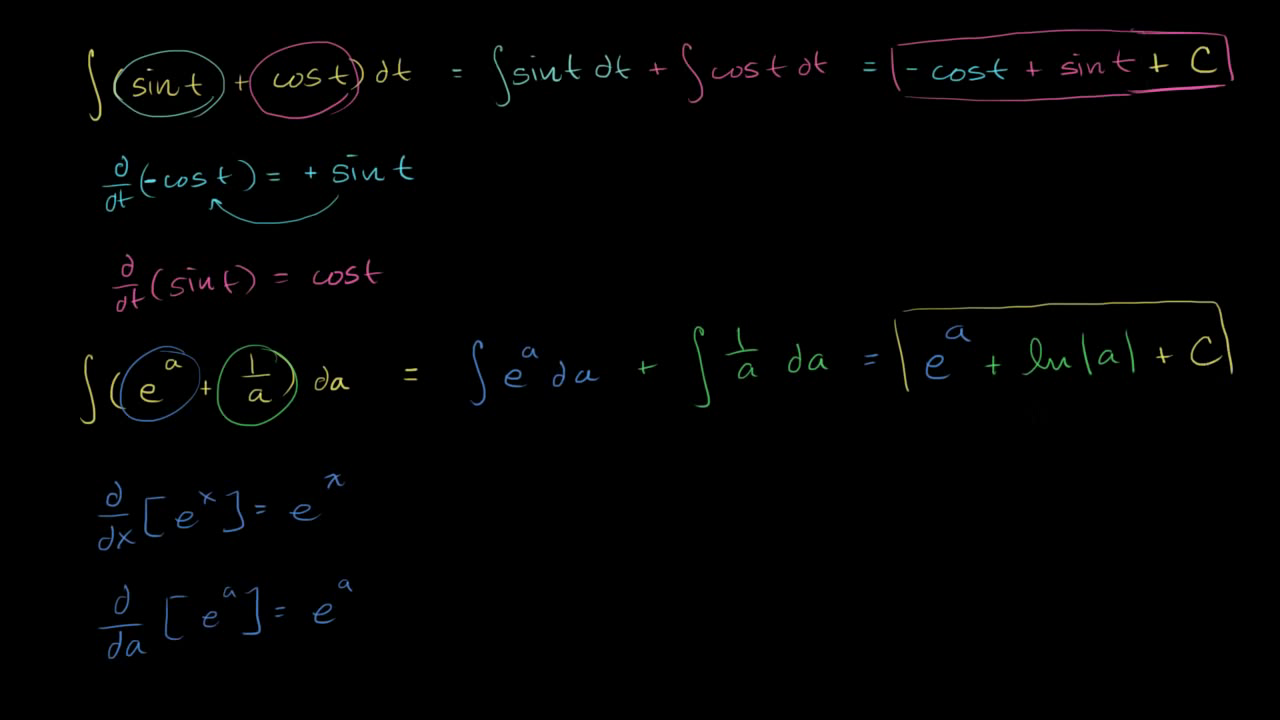 ∫(sin t + cos t) dt = ∫sin t dt + ∫cos t dt = - cos t + sin t + C
d/dt (-cos t) = + sin t
d/dt (sin t) = cos t
∫(e^a + 1/a) da = ∫e^a da + ∫ 1/a da = e^a + ln|a| + C
d/dx [e^x] = e^x
d/da [e^a] = e^a